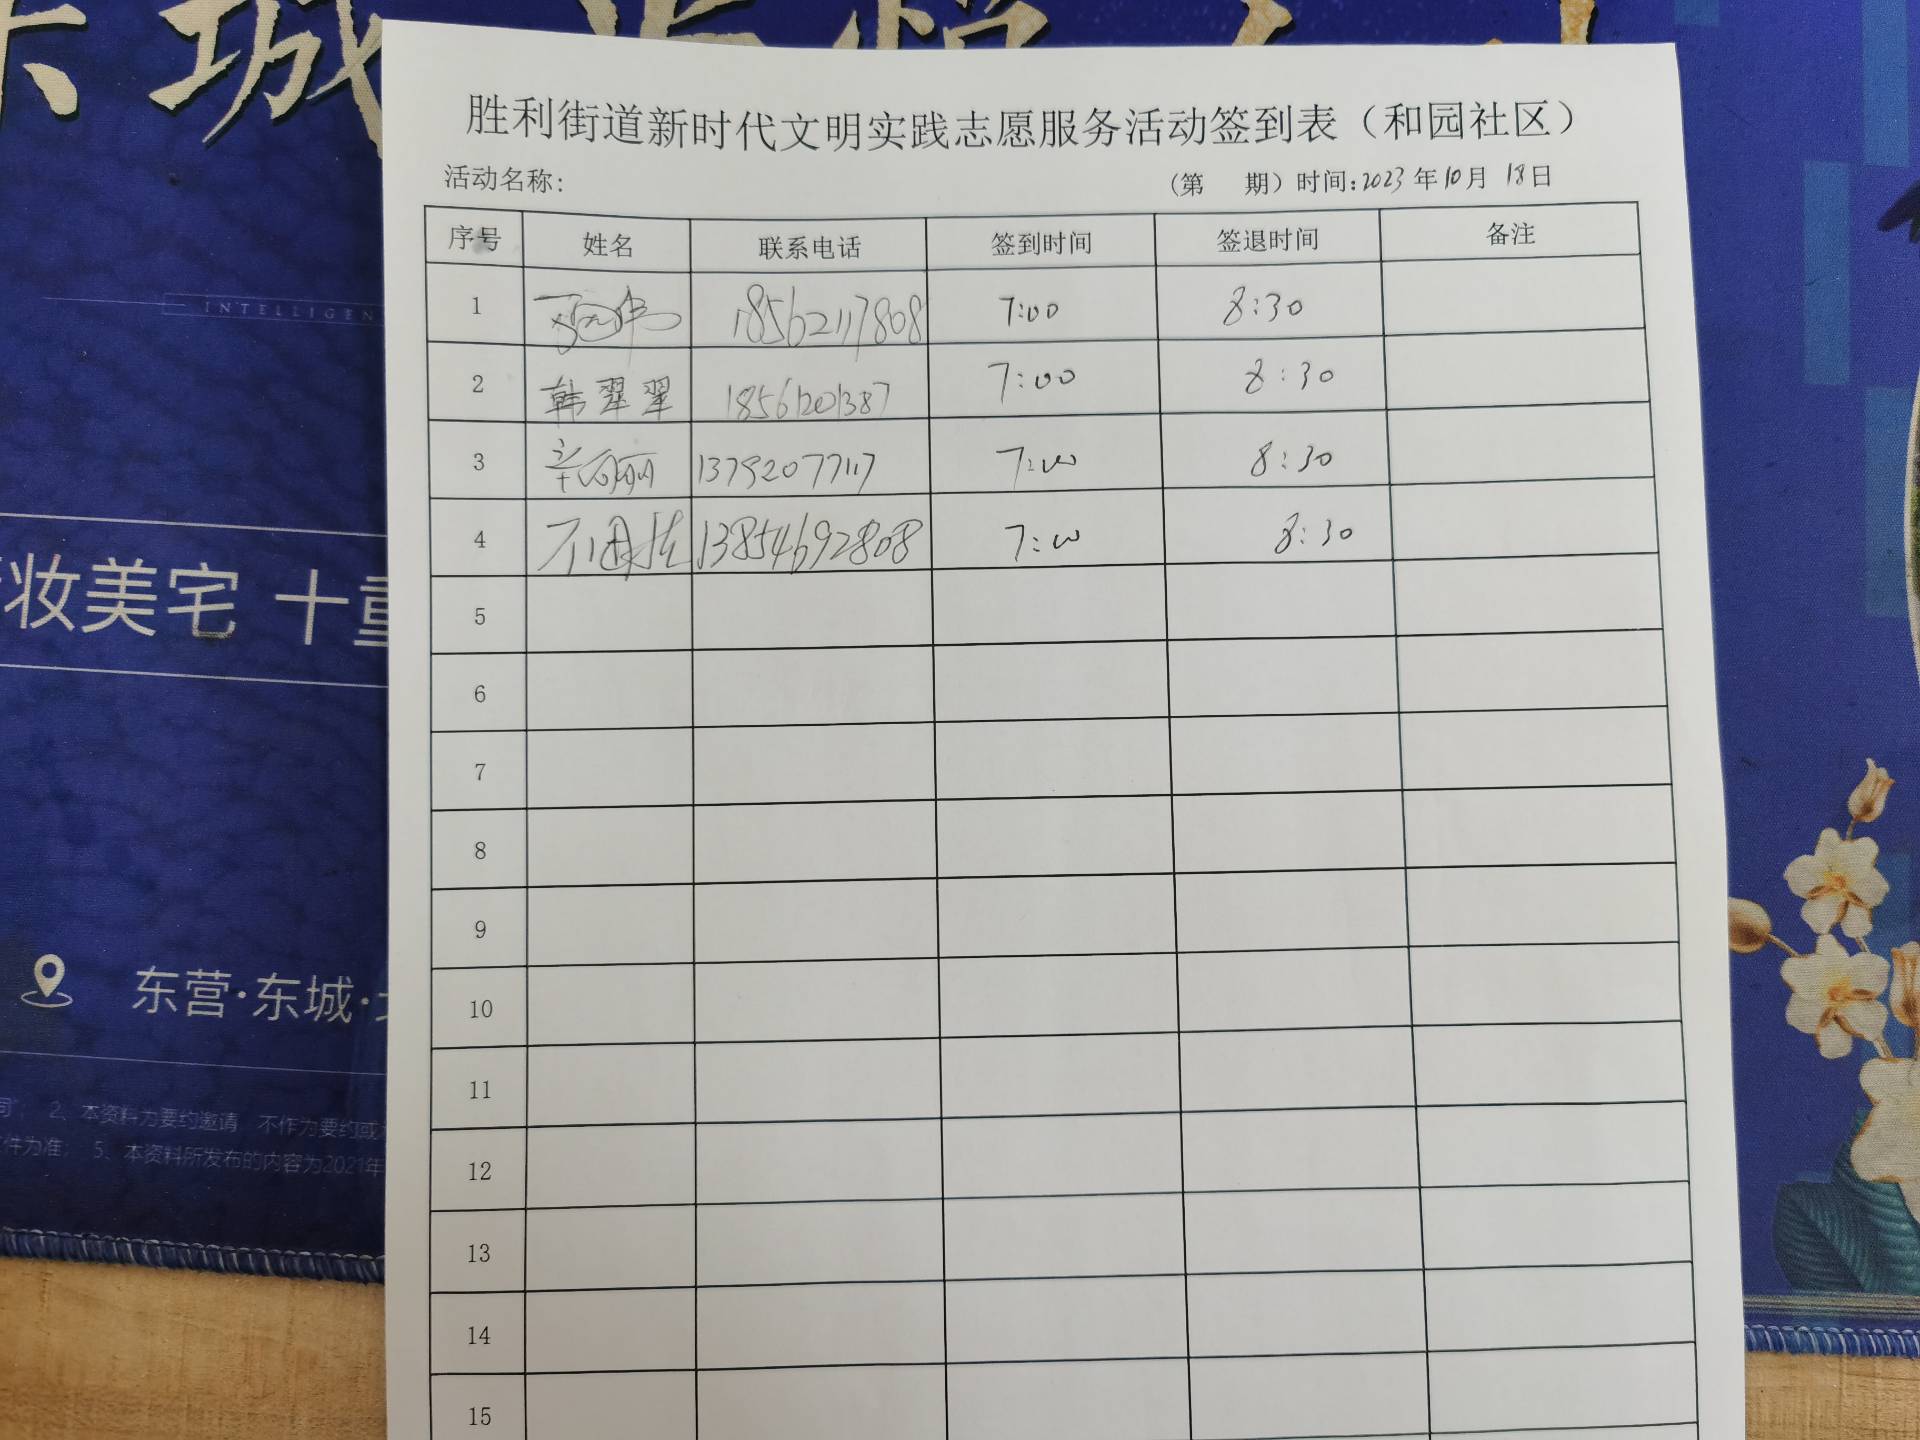 城
INTELLIGEN
妆美宅 十重
东营·东城·
2、本资料为要约邀请 不作为要约或
件为准； 5、本资料所发布的内容为2021年
胜利街道新时代文明实践志愿服务活动签到表（和园社区）
活动名称： （第 期）时间：2023年10月18日
序号 姓名 联系电话 签到时间 签退时间 备注
1 18562117808 7:00 8:30
2 韩翠翠 18561201387 7:00 8:30
3 辛丽丽 13792077117 7:00 8:30
4 13854692808 7:00 8:30
5
6
7
8
9
10
11
12
13
14
15